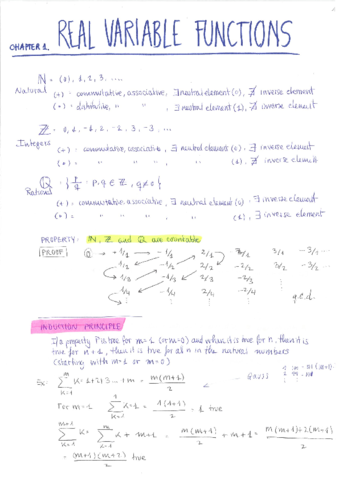 CHAPTER 1. REAL VARIABLE FUNCTIONS
ℕ = (0), 1, 2, 3, ....
Natural (+) = commutative, associative, ∃ neutral element (0), ∄ inverse element
(•) = distributive, " " , ∃ neutral element (1), ∄ inverse element
ℤ = 0, 1, -1, 2, -2, 3, -3, ...
Integers (+) = commutative, associative, ∃ neutral element (0), ∃ inverse element
(•) = " " " " (1), ∄ inverse element
ℚ = { p/q : p, q ∈ ℤ, q≠0 }
Rational (+) = commutative, associative, ∃ neutral element (0), ∃ inverse element
(•) = " " " " (1), ∃ inverse element
PROPERTY: ℕ, ℤ and ℚ are countable
PROOF ℚ → +1/1 -1/1 2/1 3/1 -3/1 ...
1/2 -1/2 2/2 -2/2 3/2 -3/2 ...
1/3 -1/3 2/3 -2/3
1/4 -1/4 2/4 -2/4 q.e.d.
INDUCTION PRINCIPLE
If a property P is true for n=1 (or n=0) and when it is true for n, then it is
true for n+1, then it is true for all n in the natural numbers
(starting with n=1 or n=0)
Ex: ∑ k = 1+2+3...+n = n(n+1)/2 Gauss
For n=1 ∑ k=1 = 1(1+1)/2 = 1 true
∑ k = ∑ k + n+1 = n(n+1)/2 + n+1 = n(n+1)+2(n+1)/2
= (n+1)(n+2)/2 true